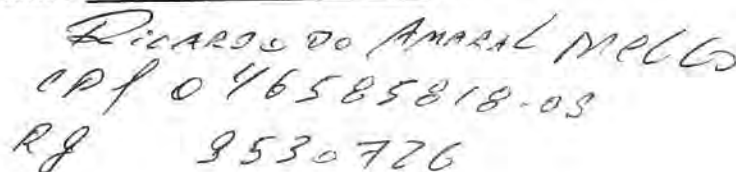 Ricardo do Amaral Mello
CPf 046585818-09
Rg 9530726